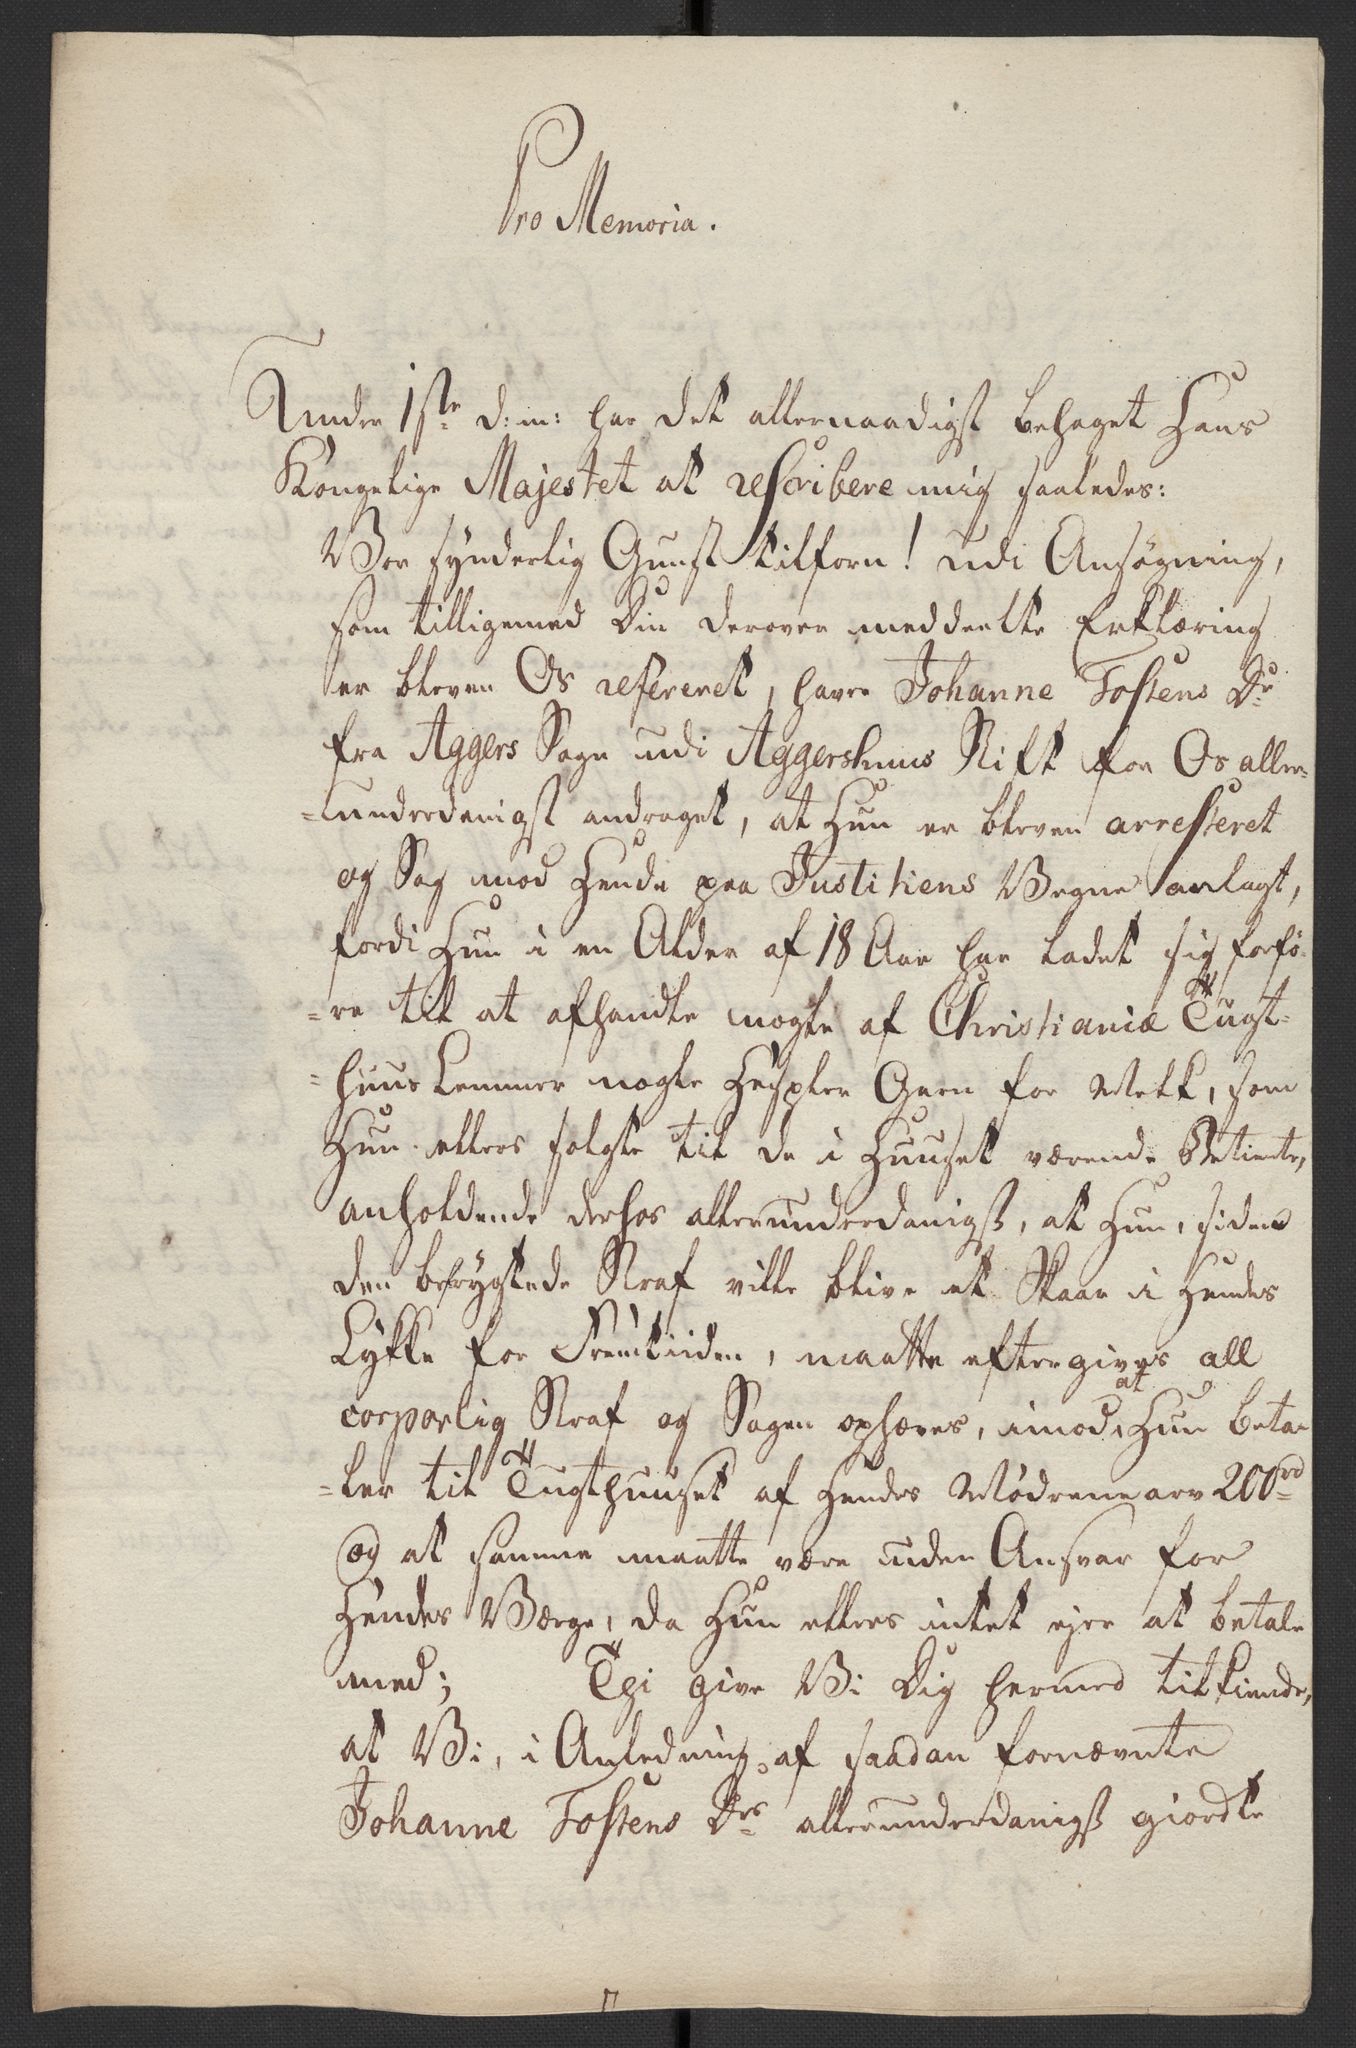 Pro Memoria.
Under 1ste d: m: har det allernaadigst behaget Hans
Kongelige Majestet at rescribere mig saaledes:
Vor synderlig Gunst tilforn! udi Ansøgning,
som tilligemed Din derover meddeelte Erklæring
er bleven Os refereret, haver Johanne Tostens Dr
fra Aggers Sogn udi Aggershuus Stift for Os aller-
=underdanigst andraget, at Hun er bleven arresteret
og Sag mod Hende paa Justitiens Vegne anlagt,
fordi Hun i en Alder af 18 Aar har ladet sig forfø-
=re til at afhandle nogle af Christianiæ Tugt-
=huus Lemmer nogle Hespler Garn for Melk, som
Hun ellers solgte til de i Huuset værende Betiente,
anholdende derhos allerunderdanigst, at Hun, siden
den befrygtede Straf ville blive et Skaar i Hendes
Lykke for Fremtiiden, maatte eftergives all
corporlig Straf og Sagen ophæves, imod at Hun beta-
=ler til Tugthuuset af Hendes Mødrene arv 200rd
og at samme maatte være uden Ansvar for
Hendes Værge, da Hun ellers intet ejer at betale
med; Thi give Vi Dig hermed tilkiende,
at Vi, i Anledning af saadan fornævnte
Johanne Tostens Drs allerunderdanigst giordte